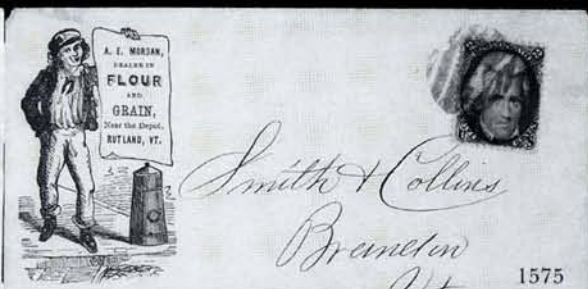 A. E. MORGAN,
DEALER IN
FLOUR
AND
GRAIN,
Near the Depot,
RUTLAND, VT.
Smith & Collins
Brandon
Vt
1575